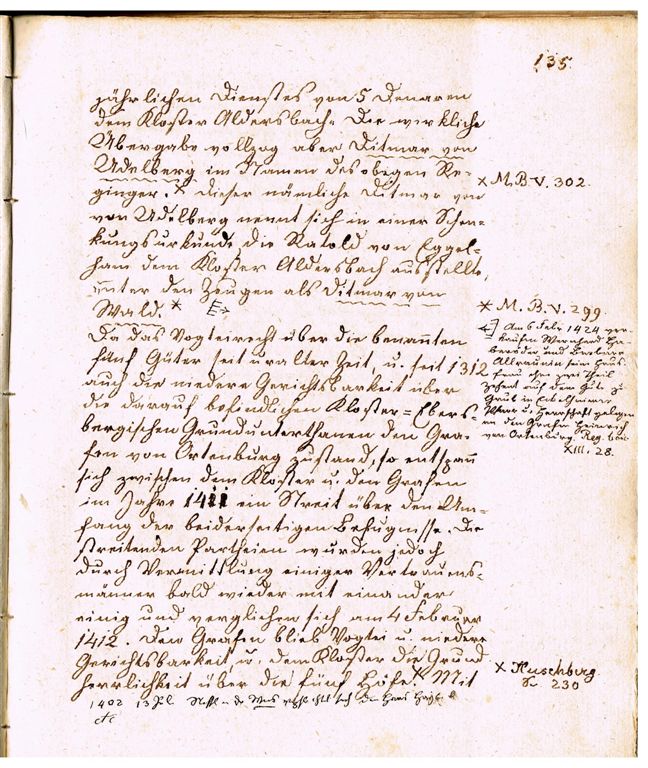 135.
jährlichen Dienstes von 5 Denaren
dem Kloster Aldersbach. Die wirkliche
Übergabe vollzog aber Ditmar von
Udelberg im Namen des obigen Re-
ginger. × Dieser nämliche Ditmar von
von Udelberg nennt sich in einer Schen-
kungsurkunde die Ratold von Eggel-
ham dem Kloster Aldersbach ausstellte,
unter den Zeugen als Ditmar von
Wald. *
Da das Vogteirecht über die benannten
fünf Güter seit uralter Zeit, u. seit 1312
auch die niedere Gerichtsbarkeit über
die darauf befindlichen Kloster=Ebers-
bergischen Grundunterthanen den Gra-
fen von Ortenburg zustand, so entspann
sich zwischen dem Kloster u. den Grafen
im Jahre 1411 ein Streit über den Um-
fang der beiderseitigen Befugnisse. Die
streitenden Partheien wurden jedoch
durch Vermittlung einiger Vertrauens-
männer bald wieder mit einander
einig und verglichen sich am 4 Februar
1412. Dem Grafen blieb Vogtei u. niedere
Gerichtsbarkeit, u. dem Kloster die Grund
herrlichkeit über die fünf Höfe. × Mit
1402 13 Jul
× M. B. V. 302.
* M. B. V. 299.
Am 6 Febr. 1424 ver-
kaufen
und
zwei Theil
Zehent auf dem Gute zu
Grub in
Pfarr u. Herrschaft gelegen
an den Grafen Heinrich
von Ortenburg. Reg. boic
XIII. 28.
× Huschberg.
S. 230